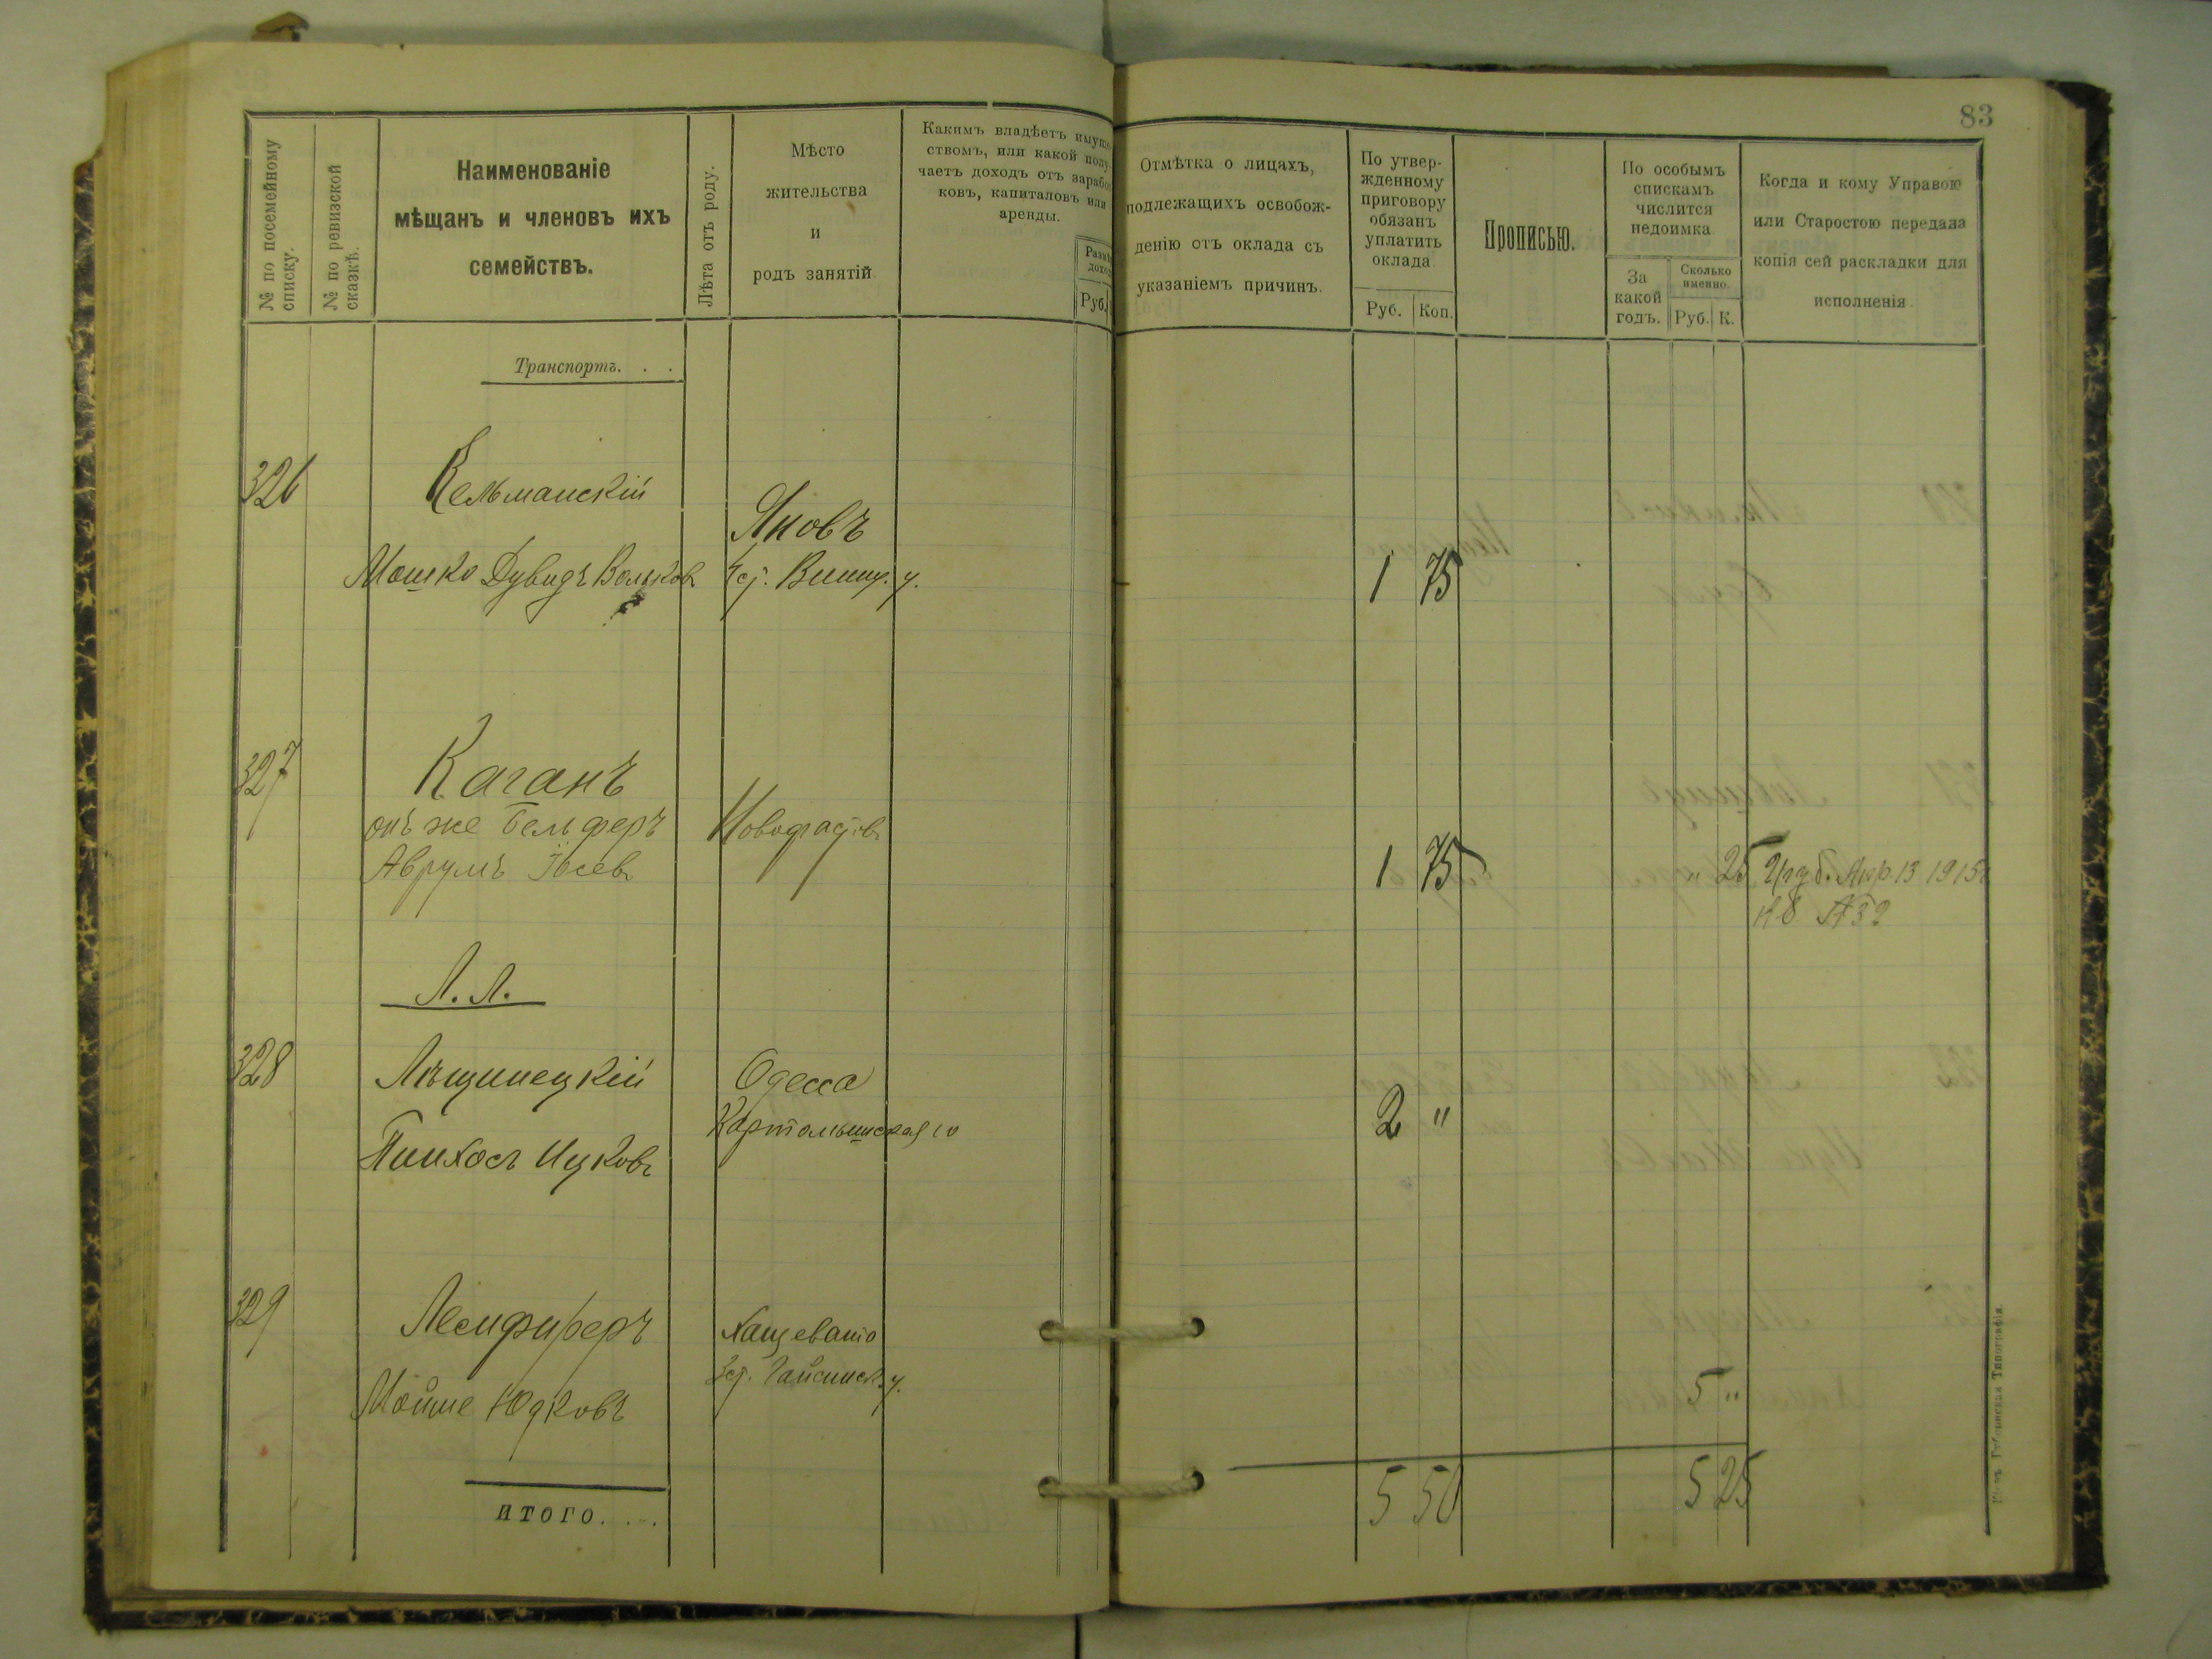 83
№ по посемейному
списку.
№ по ревизской
сказкѣ.
Наименованіе
мѣщанъ и членовъ ихъ
семействъ.
Лѣта отъ роду.
Мѣсто
жительства
и
родъ занятій
Какимъ владѣетъ имуще-
ствомъ, или какой полу-
чаетъ доходъ отъ зарабо
ковъ, капиталовъ или
аренды.
Руб.
Отмѣтка о лицахъ,
подлежащихъ освобож-
денію отъ оклада съ
указаніемъ причинъ.
По утвер-
жденному
приговору
обязанъ
уплатить
оклада
Руб. Коп.
Прописью.
По особымъ
спискамъ
числится
недоимка
За
какой
годъ.
Сколько
именно.
Руб. К.
Когда и кому Управою
или Старостою передана
копія сей раскладки для
исполненія
Транспортъ. . .
326 Кельманскій
Яновъ
Мошко Дувидъ Вольковъ Винн. у. 1 75
327 Каганъ
онъ же Бельферъ
Аврумъ Іосевъ 1 75 " 25 13 1915
Л. Л.
328 Лѣщинецкій Одесса
2 "
Пинхосъ Ицковъ
329 Лемфиреръ Хащевато
Гайсинск. у.
Мойше Юдковъ 5 "
итого. . . . 5 50 5 25